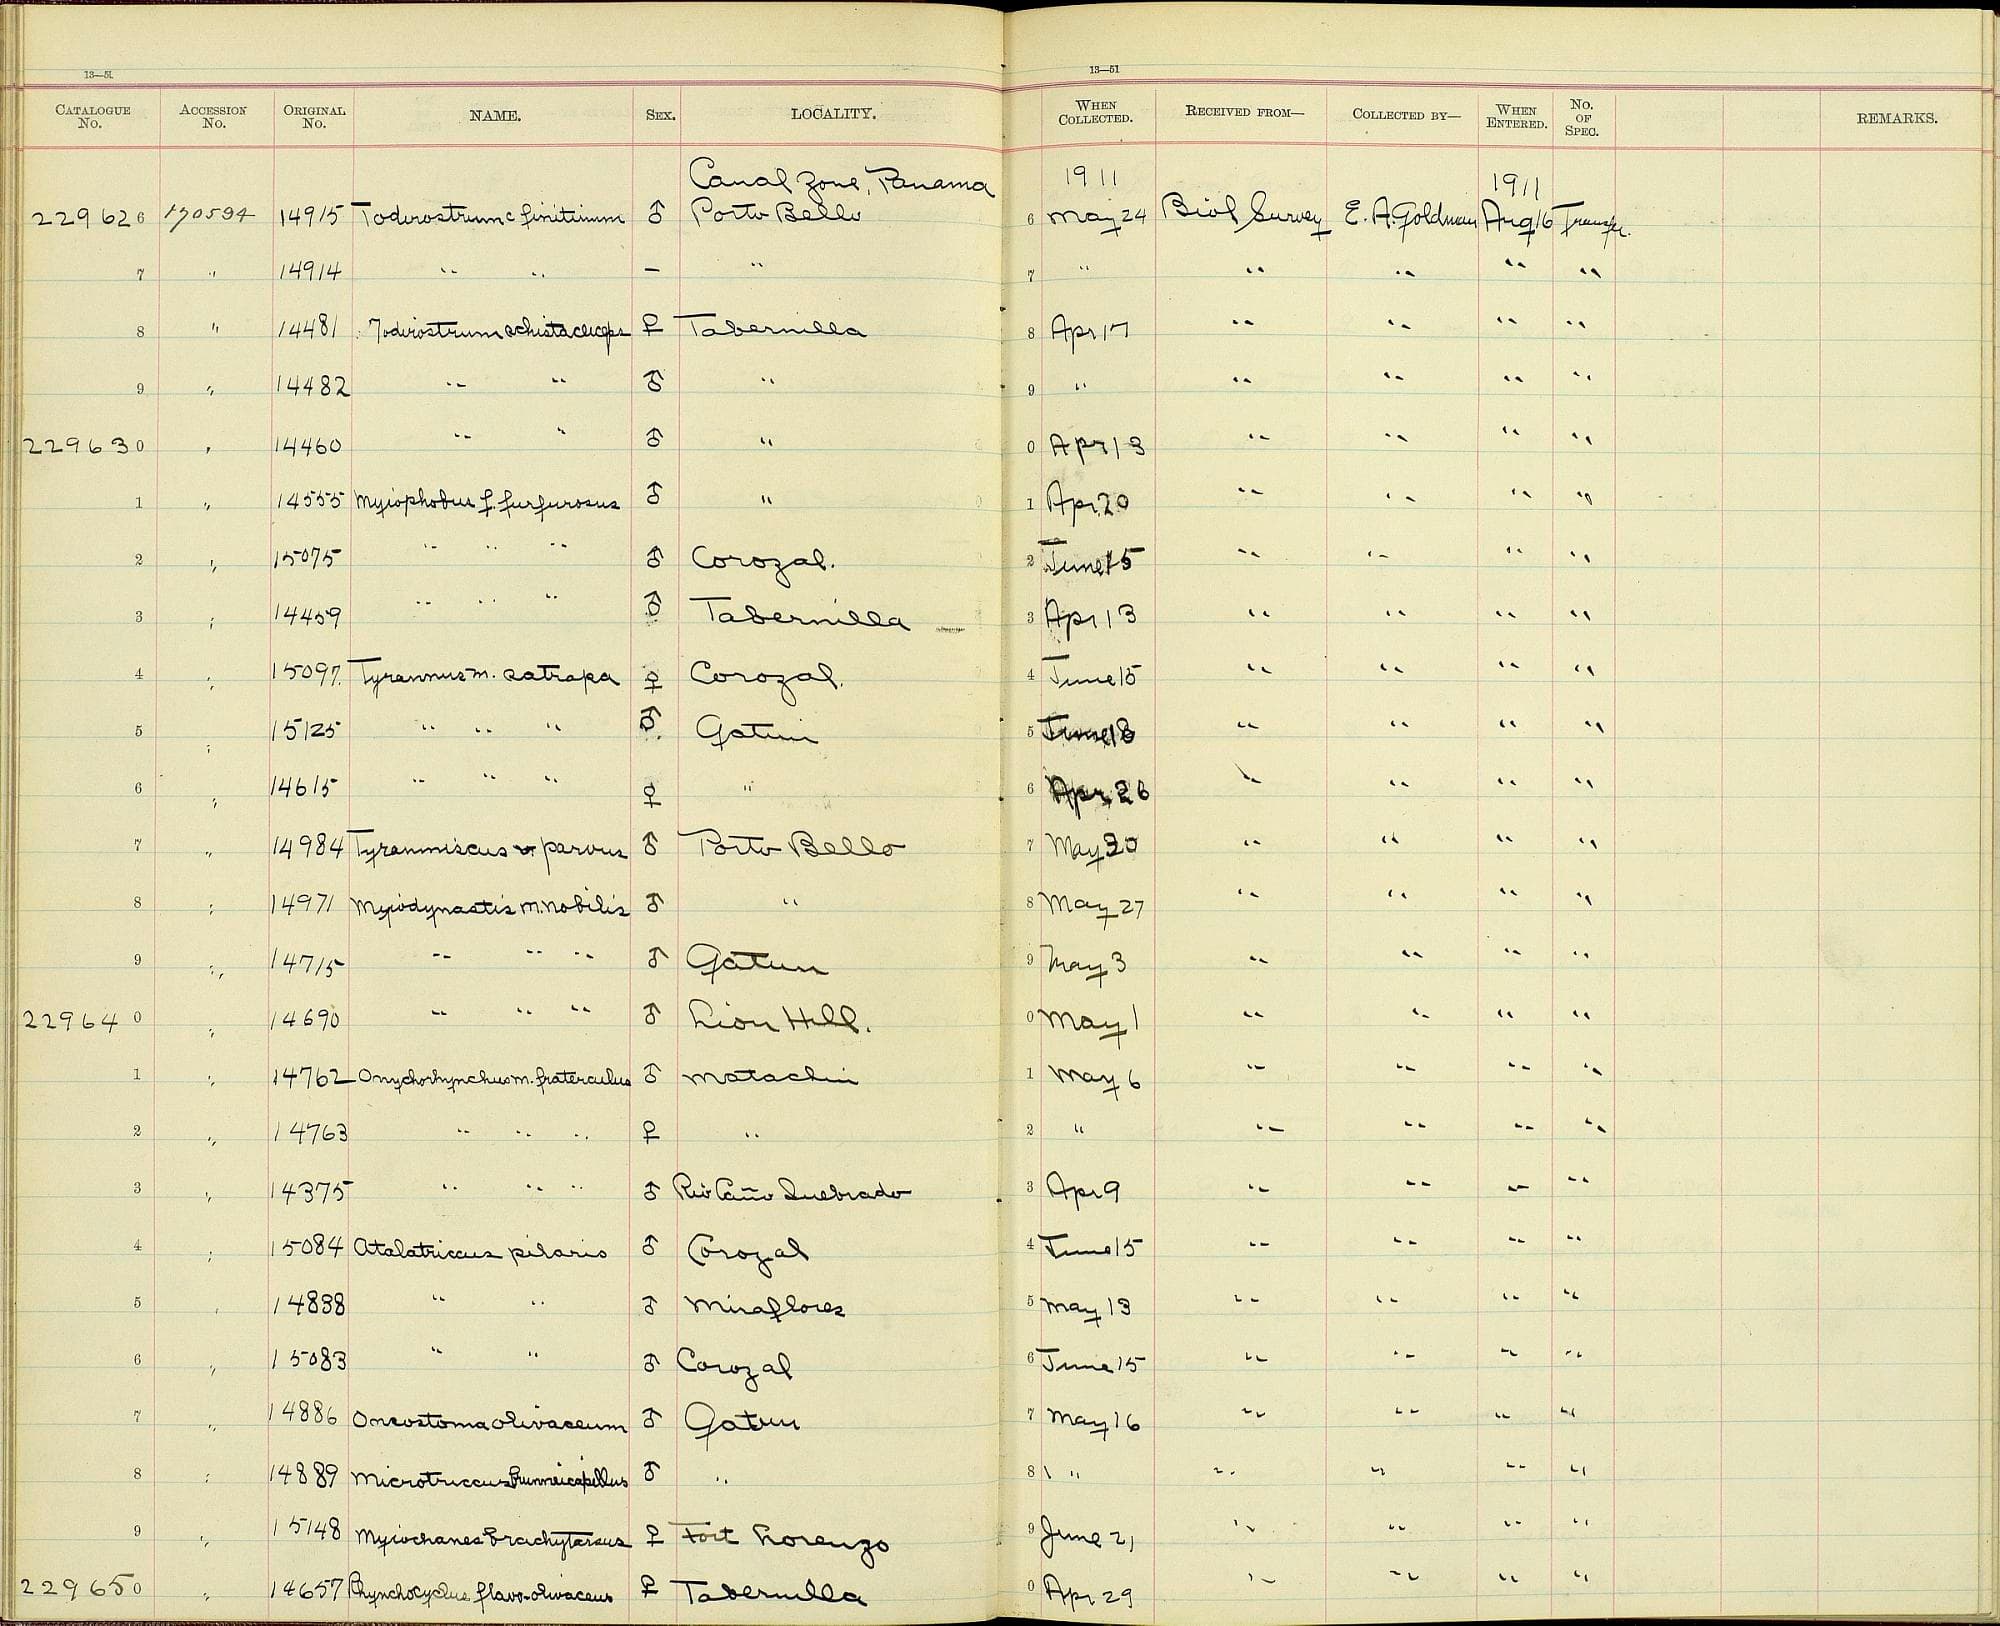 13—51 13—51
CATALOGUE No. ACCESSION No. ORIGINAL No. NAME. SEX. LOCALITY. WHEN COLLECTED. RECEIVED FROM— COLLECTED BY— WHEN ENTERED. No. OF SPEC. REMARKS.
Canal Zone, Panama 1911 1911
22962 6 170594 14915 Todirostrum c finitimum ♂ Porto Bello 6 May 24 Biol Survey E. A. Goldman Aug 16 Transfer.
7 " 14914 " " – " 7 " " " " "
8 " 14481 Todirostrum schistaceiceps ♀ Tabernilla 8 Apr 17 " " " "
9 " 14482 " " ♂ " 9 " " " " "
22963 0 " 14460 " " ♂ " 0 Apr 13 " " " "
1 " 14555 Myiophobus f. furfurosus ♂ " 1 Apr 20 " " " "
2 " 15075 " " " ♂ Corozal. 2 June 15 " " " "
3 " 14459 " " " ♂ Tabernilla 3 Apr 13 " " " "
4 " 15097. Tyrannus m. satrapa ♀ Corozal. 4 June 15 " " " "
5 " 15125 " " " ♂ Gatun 5 June 18 " " " "
6 " 14615 " " " ♀ " 6 Apr 26 " " " "
7 " 14984 Tyranniscus v. parvus ♂ Porto Bello 7 May 30 " " " "
8 " 14971 Myiodynastis m. nobilis ♂ " 8 May 27 " " " "
9 " 14715 " " " ♂ Gatun 9 May 3 " " " "
22964 0 " 14690 " " " ♂ Lion Hill. 0 May 1 " " " "
1 " 14762 Onychorhynchus m. fraterculus ♂ Matachin 1 May 6 " " " "
2 " 14763 " " " ♀ " 2 " " " " "
3 " 14375 " " " ♂ Rio Caño Quebrado 3 Apr 9 " " " "
4 " 15084 Atalatriccus pilaris ♂ Corozal 4 June 15 " " " "
5 " 14838 " " ♂ Miraflores 5 May 13 " " " "
6 " 15083 " " ♂ Corozal 6 June 15 " " " "
7 " 14886 Oncostoma olivaceum ♂ Gatun 7 May 16 " " " "
8 " 14889 Microtriccus brunneicapillus ♂ " 8 " " " " "
9 " 15148 Myiochanes brachytarsus ♀ Fort Lorenzo 9 June 21 " " " "
22965 0 " 14657 Rhynchocyclus flavo-olivaceus ♀ Tabernilla 0 Apr 29 " " " "